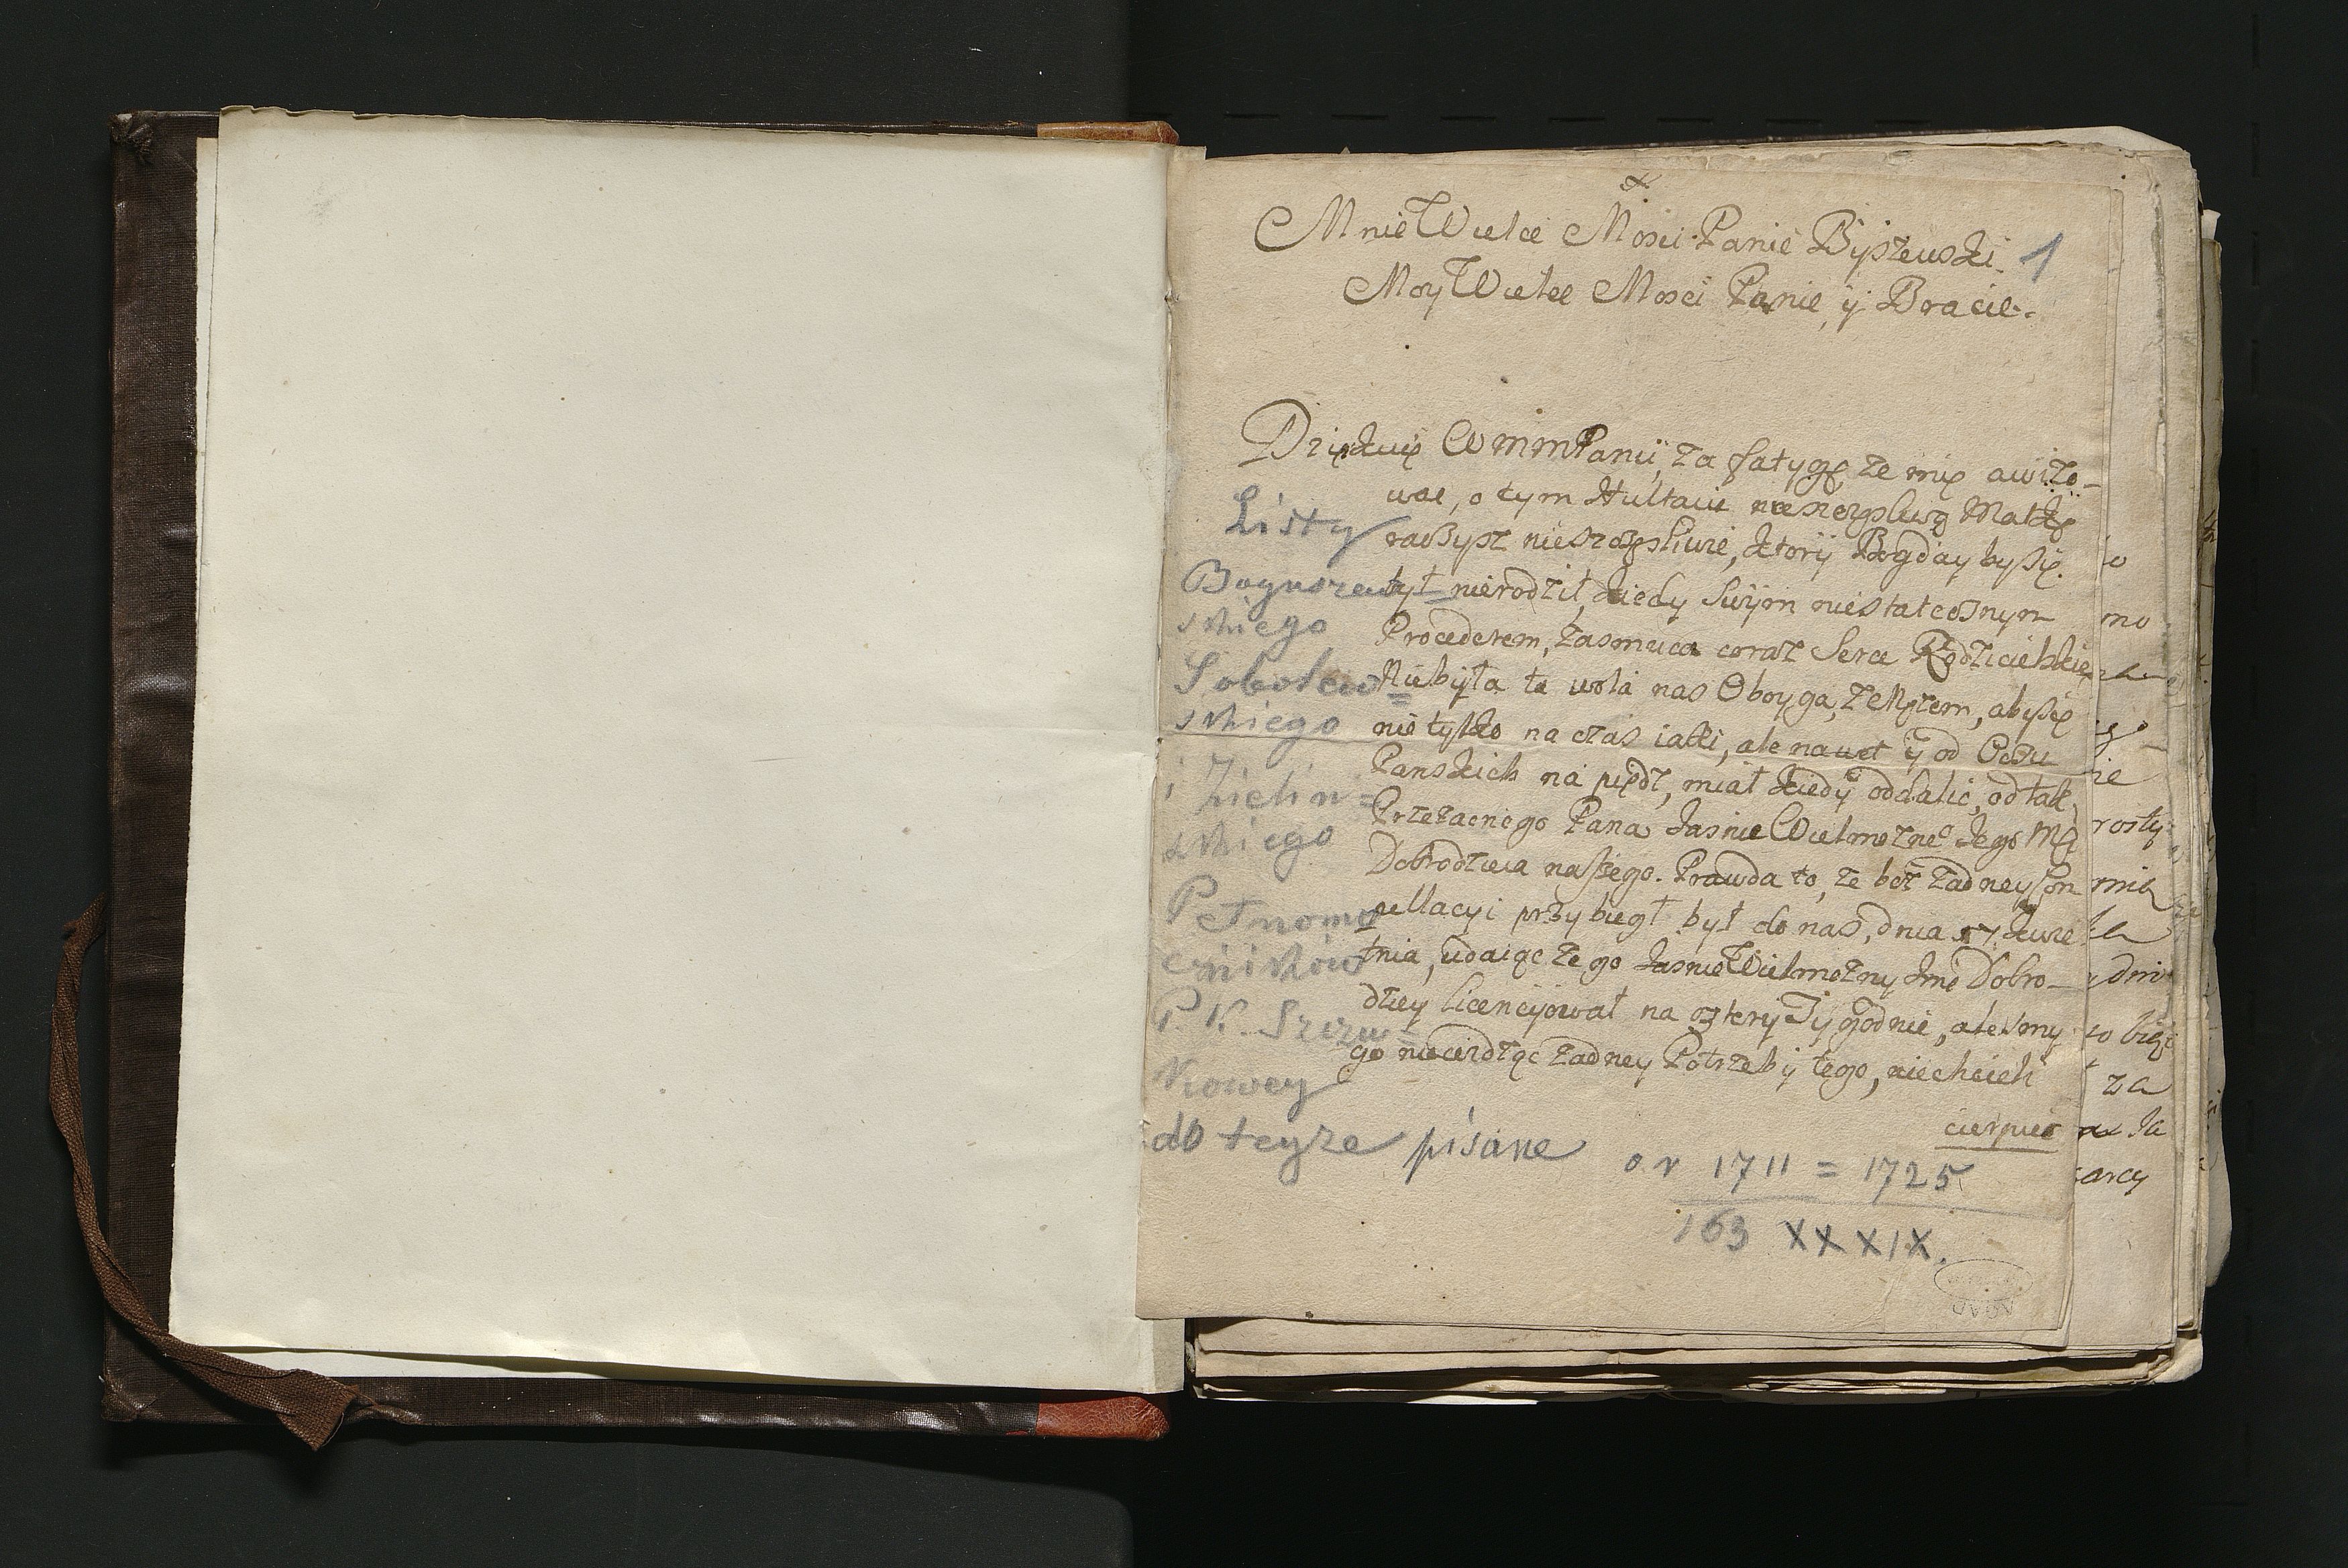 1
Mnie Wielce Mosci Panie Byszewski.
Moy Wielce Mosci Panie, y Bracie.
Dziękuię WMMPanu, za fatygę, ze mię awizo-
wał, o tym Hultaiu nieszczęsliwą Matkę
nieszczęsliwie, ktory Bogday bysię
był nierodził, kiedy swym niestatecznym
Procederem, zasmuca coraz Serce Rodzicielskie
Niebyła ta wola nas Oboyga, zeMężem, abysię
nie tylko na czas iaki, ale nawet y od Oczu
Panskich na piędz, miał kiedy oddalic, od tak
Przezacnego Pana Jasnie Wielmozneo Jego Mci
Dobrodzieia naszego. Prawda to, ze bez zadney Con
stellacyi przybiegł był do nas, dnia 17 Kwie
tnia, udaiąc ze go Jasnie Wielmozny Jmc Dobro-
dziey licencyował na cztery Tygodnie, alesmy
go niewidząc zadney Potrzeby tego, niechcieli
cierpiec
Listy
Boguszew=
skiego
Sobolew=
skiego
i Zielin=
skiego
Pełnomo
cników
P. K. Szczu=
kowey
do teyze pisane or 1711 = 1725
163 XXXIX.
AGAD